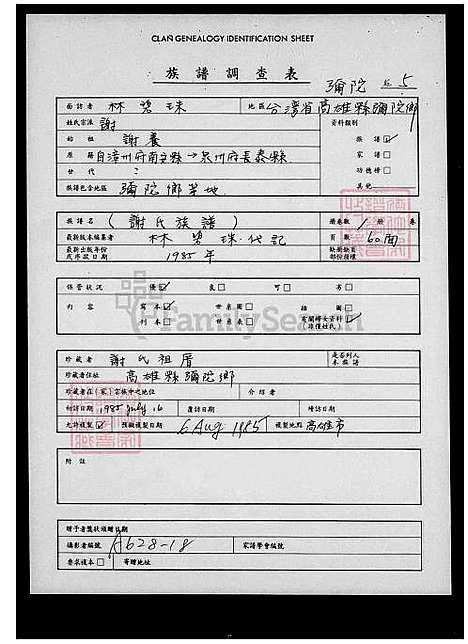 CLAN GENEALOGY IDENTIFICATION SHEET
族譜調查表 彌陀 5
面訪者 林碧珠 地區 台灣省高雄縣彌陀鄉
姓氏宗派 謝 資料類別
始祖 謝養 族譜☑
原籍 自漳州府南文縣→泉州府長泰縣 家譜□
世代 : 功德榜□
族譜包含地區 彌陀鄉等地 其他
族譜名 (謝氏族譜) 總卷數 1 缺 卷
最新版本編纂者 林碧珠代記 頁數 60面
最新出版年份或序跋日期 1985年 缺冊缺頁部份損壞
保管狀況 優☑ 良□ 可□ 劣□
內容 寫本☑ 世系圖□ 插圖□
刊本□ 世系表□ 有關婦女資料☑(非僅姓氏)
FamilySearch
珍藏者 謝氏祖厝 是否列入本族譜
珍藏者住址 高雄縣彌陀鄉
珍藏者在(家)宗族中之地位 介紹者
初訪日期 1985 July 16 覆訪日期 續訪日期
允許複製☑ 預擬複製日期 6 Aug 1985 複製地點 高雄市
附註
贈予者獎狀頒贈日期
攝影者編號 A628-18 家譜學會編號
要求複本□ 寄贈地址